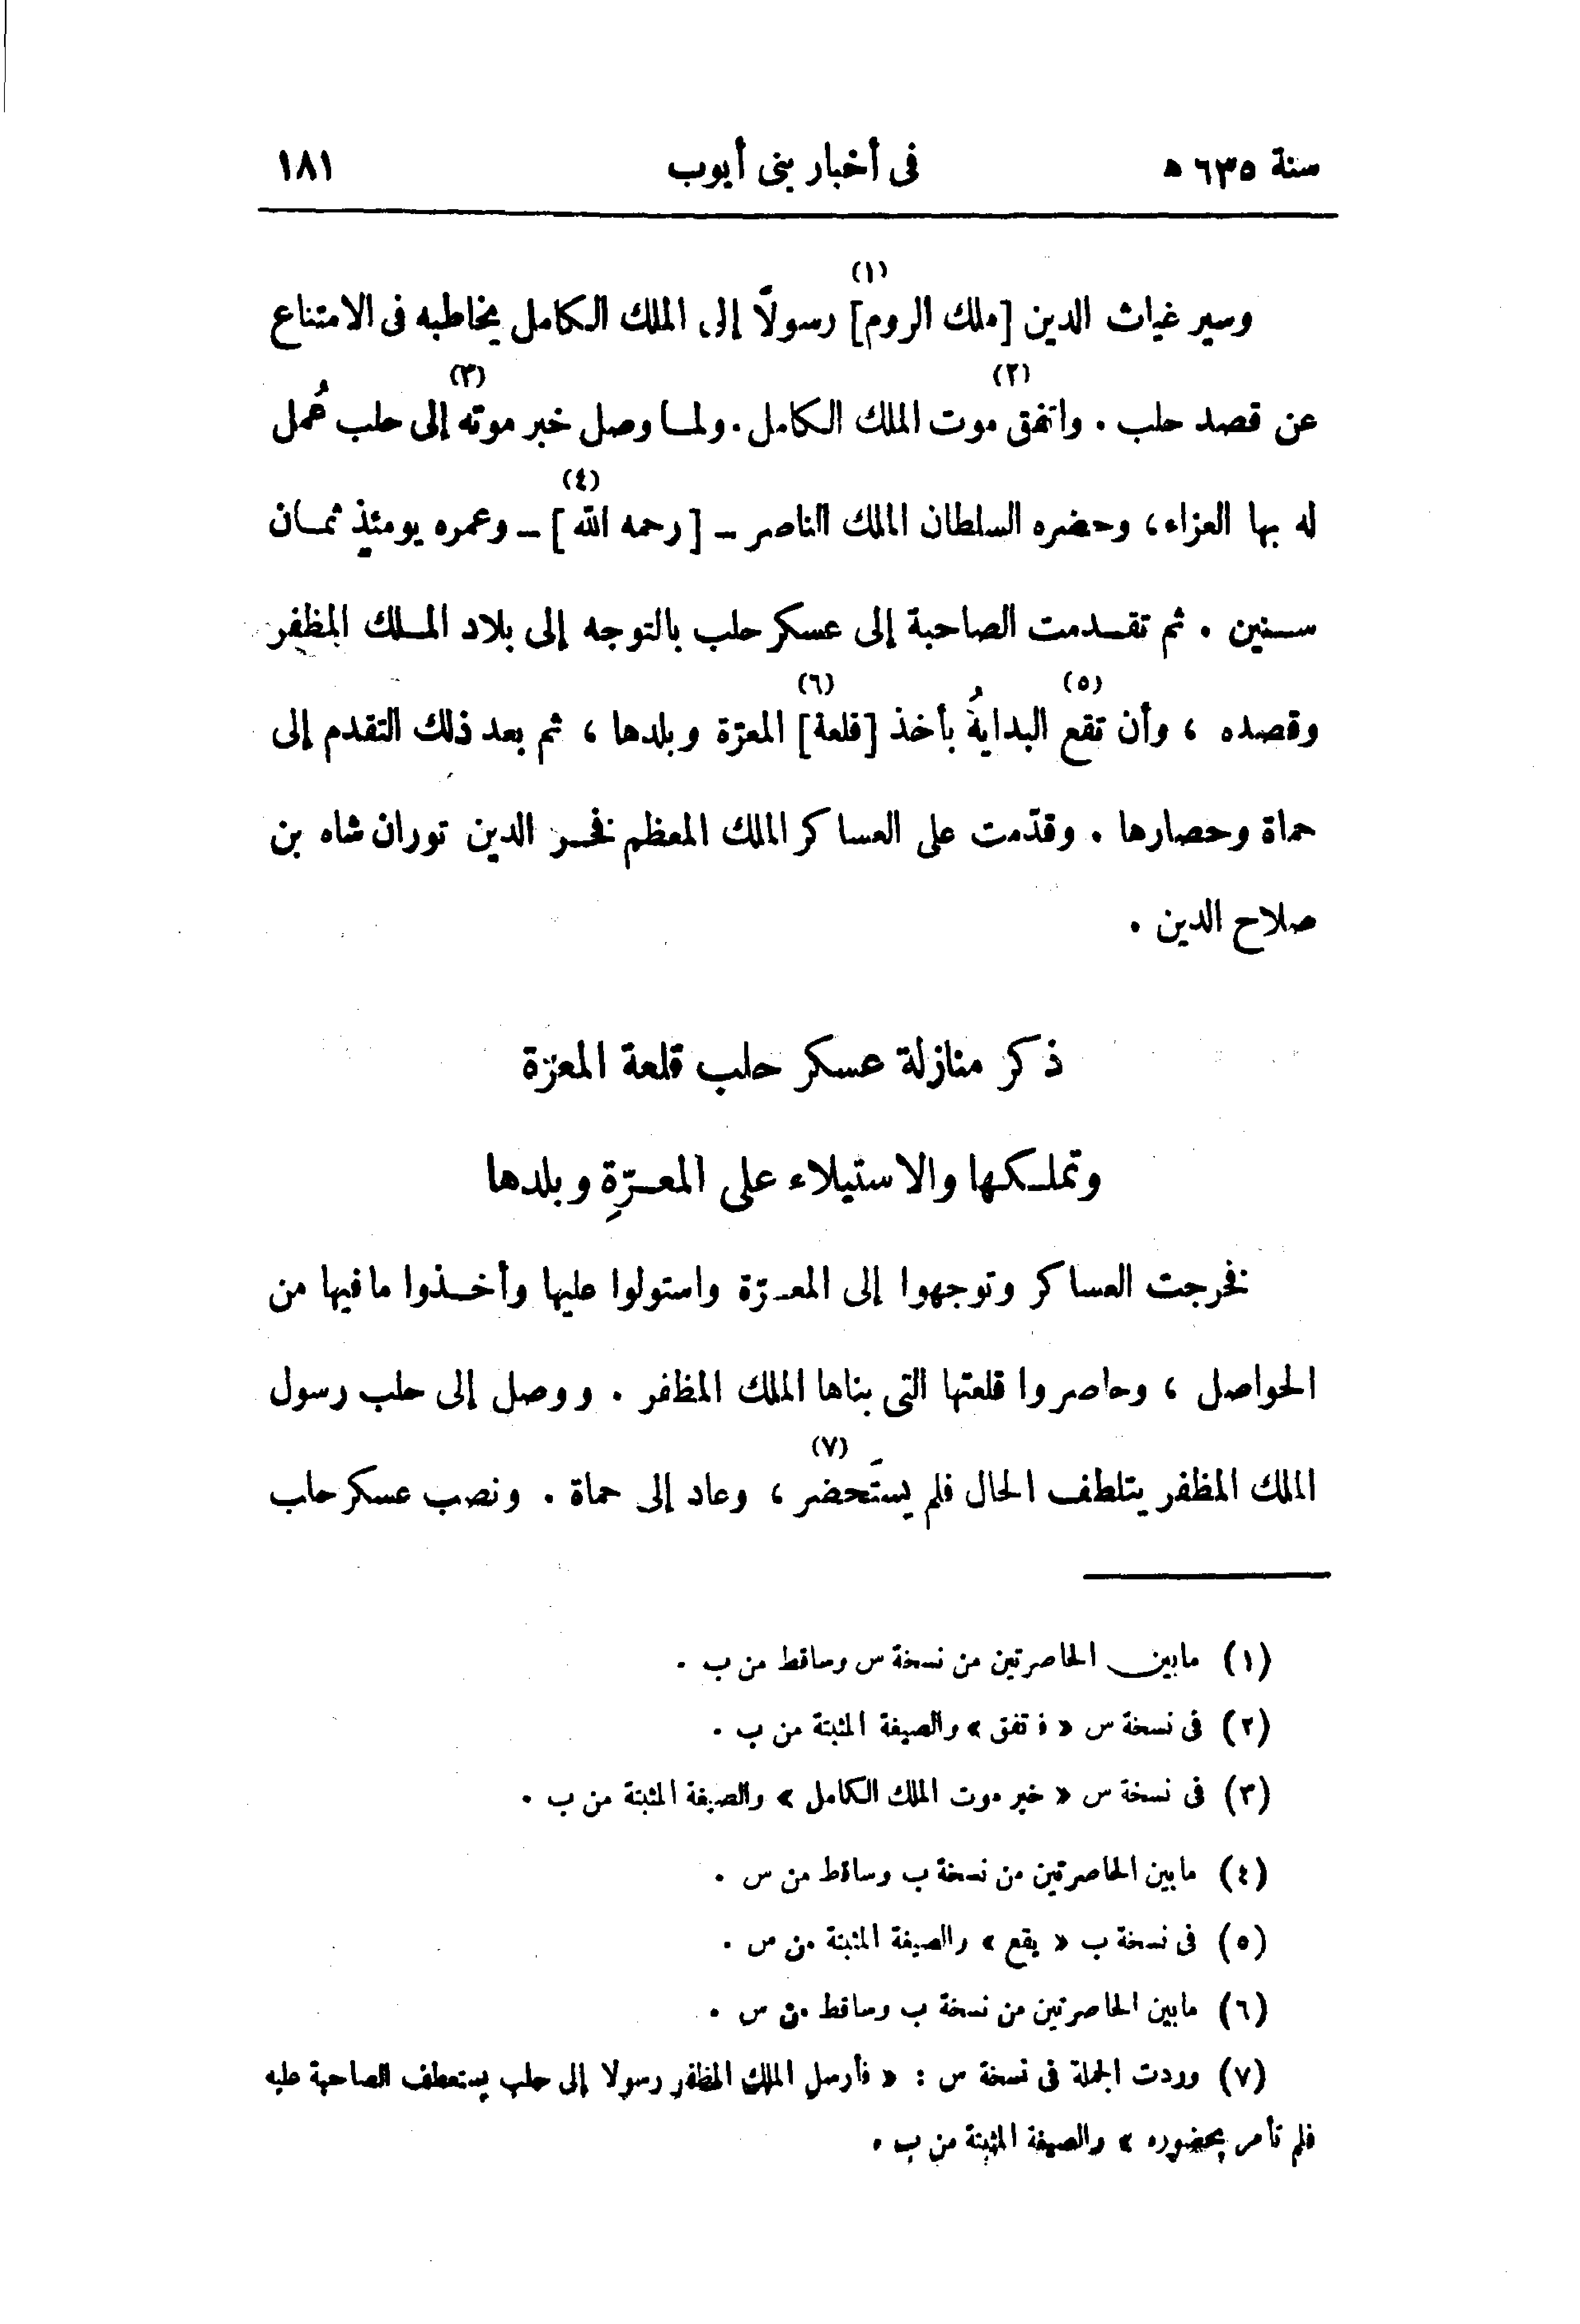 سنة ٦٣٥ ه فى أخبار بنى أيوب ١٨١
وسير غياث الدين [ملك الروم] (١) رسولًا إلى الملك الكامل يخاطبه فى الامتناع
عن قصد حلب . واتفق (٢) موت الملك الكامل . ولما وصل خبر موته (٣) إلى حلب عُمل
له بها العزاء ، وحضره السلطان الملك الناصر - [رحمه الله] (٤) - وعمره يومئذٍ ثمان
سنين . ثم تقدمت الصاحبة إلى عسكر حلب بالتوجه إلى بلاد الملك المظفر
وقصده ، وأن تقع (٥) البدايةُ بأخذ [قلعة] (٦) المعرّة وبلدها ، ثم بعد ذلك التقدم إلى
حماة وحصارها . وقدّمت على العساكر الملك المعظم فخر الدين توران شاه بن
صلاح الدين .
ذكر منازلة عسكر حلب قلعة المعرّة
وتملكها والاستيلاء على المعرّةِ وبلدها
فخرجت العساكر وتوجهوا إلى المعرّة واستولوا عليها وأخذوا ما فيها من
الحواصل ، وحاصروا قلعتها التى بناها الملك المظفر . ووصل إلى حلب رسول
الملك المظفر يتلطف الحال فلم يستَحضر (٧) ، وعاد إلى حماة . ونصب عسكر حلب
(١) ما بين الحاصرتين من نسخة س وساقط من ب .
(٢) فى نسخة س « فاتفق » والصيغة المثبتة من ب .
(٣) فى نسخة س « خبر موت الملك الكامل » والصيغة المثبتة من ب .
(٤) ما بين الحاصرتين من نسخة ب وساقط من س .
(٥) فى نسخة ب « يقع » والصيغة المثبتة من س .
(٦) ما بين الحاصرتين من نسخة ب وساقط من س .
(٧) وردت الجملة فى نسخة س : « فأرسل الملك المظفر رسولا إلى حلب يستعطف الصاحبة عليه
فلم تأمر بحضوره » والصيغة المثبتة من ب .